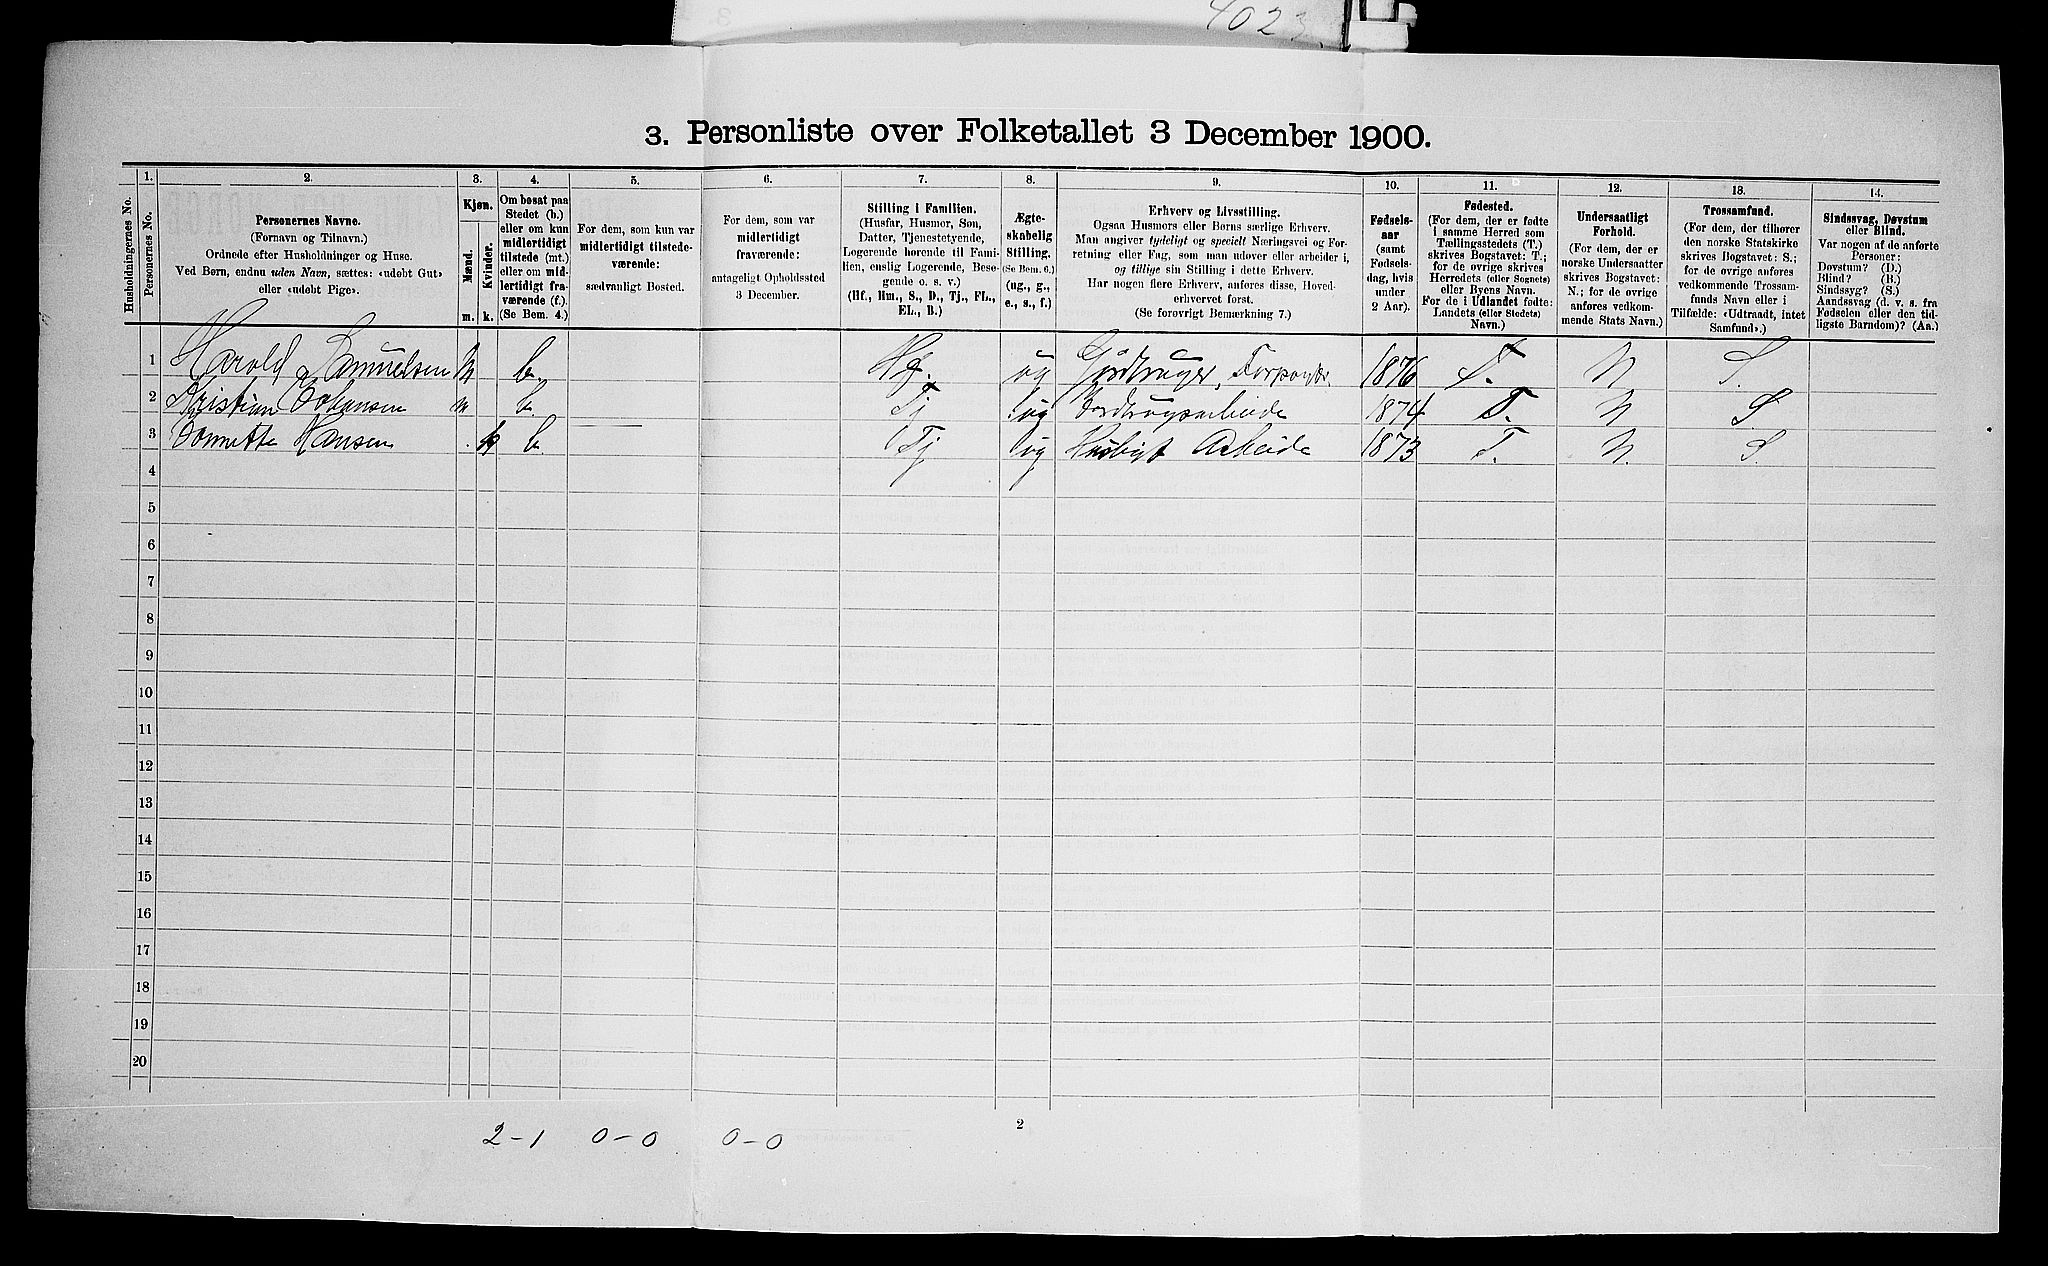 4023
3. Personliste over Folketallet 3 December 1900.
Husholdningernes No.
1.
Personernes No.
2.
Personernes Navne.
(Fornavn og Tilnavn.)
Ordnede efter Husholdninger og Huse.
Ved Børn, endnu uden Navn, sættes: «udøbt Gut»
eller «udøbt Pige».
3.
Kjøn.
Mænd.
Kvinder.
m. k.
4.
Om bosat paa
Stedet (b.)
eller om kun
midlertidigt
tilstede (mt.)
eller om mid-
lertidigt fra-
værende (f.).
(Se Bem. 4.)
5.
For dem, som kun var
midlertidigt tilstede-
værende:
sædvanligt Bosted.
6.
For dem, som var
midlertidigt
fraværende:
antageligt Opholdssted
3 December.
7.
Stilling i Familien.
(Husfar, Husmor, Søn,
Datter, Tjenestetyende,
Logerende hørende til Fami-
lien, enslig Logerende, Besø-
gende o. s. v.)
(Hf., Hm., S., D., Tj., FL.,
EL., B.)
8.
Ægte-
skabelig
Stilling.
(Se Bem. 6.)
(ug., g.,
e., s., f.)
9.
Erhverv og Livsstilling.
Ogsaa Husmors eller Børns særlige Erhverv.
Man angiver tydeligt og specielt Næringsvei og For-
retning eller Fag, som man udøver eller arbeider i,
og tillige sin Stilling i dette Erhverv.
Har nogen flere Erhverv, anføres disse, Hoved-
erhvervet først.
(Se forøvrigt Bemærkning 7.)
10.
Fødsels-
aar
(samt
Fødsels-
dag, hvis
under
2 Aar).
11.
Fødested.
(For dem, der er fødte
i samme Herred som
Tællingsstedets (T.)
skrives Bogstavet: T.;
for de øvrige skrives
Herredets (eller Sognets)
eller Byens Navn.
For de i Udlandet fødte:
Landets (eller Stedets)
Navn.)
12.
Undersaatligt
Forhold.
(For dem, der er
norske Undersaatter
skrives Bogstavet:
N.; for de øvrige
anføres vedkom-
mende Stats Navn.)
13.
Trossamfund.
(For dem, der tilhører
den norske Statskirke
skrives Bogstavet: S.;
for de øvrige anføres
vedkommende Trossam-
funds Navn eller i
Tilfælde: «Udtraadt, intet
Samfund».)
14.
Sindssvag, Døvstum
eller Blind.
Var nogen af de anførte
Personer:
Døvstum? (D.)
Blind? (B.)
Sindssyg? (S.)
Aandssvag (d. v. s. fra
Fødselen eller den tid-
ligste Barndom)? (Aa.)
1 Harold Samuelsen M b Hf. ug Gårdbruger, 1876 T. N S.
2 Kristian Johansen m b. Tj ug Jordbrugsarbeide 1874 T. N S.
3 Hansen k b Tj ug Husligt Arbeide 1873 T. N. S.
4
5
6
7
8
9
10
11
12
13
14
15
16
17
18
19
20
2-1 0-0 0-0
2